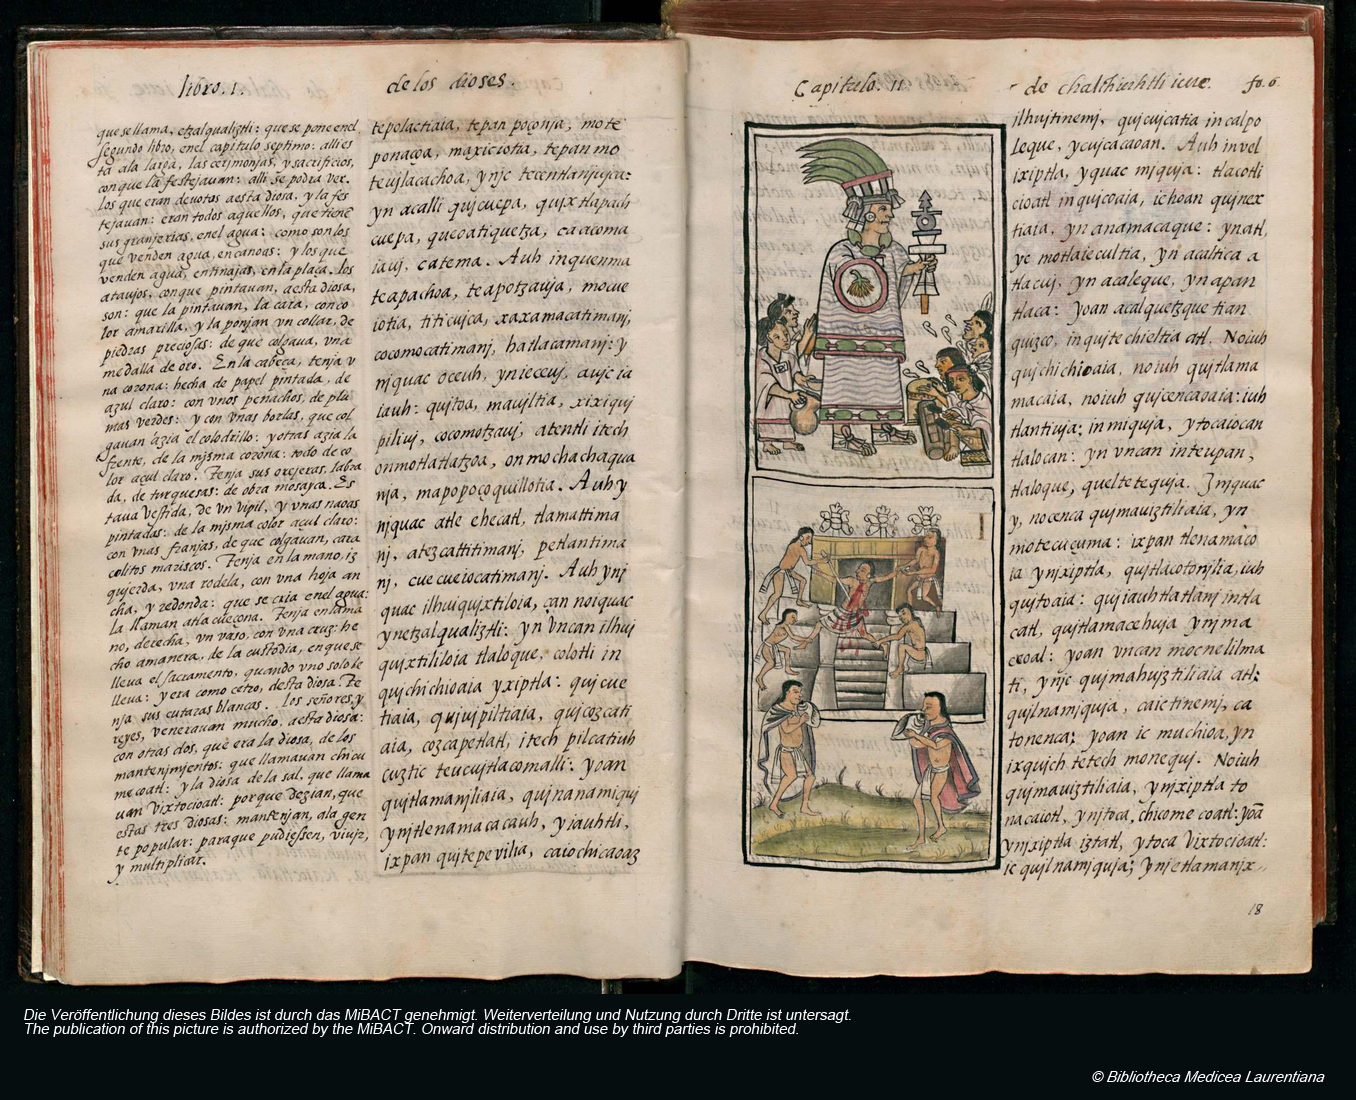 libro. 1.
de los dioses.
que se llama, etzalqualiztli: que se pone en el
segundo libro, en el capitulo septimo: alli es
ta ala larga, las cerimonjas, y sacrificios,
con que la festejauan: alli se podra ver.
Los que eran deuotos a esta diosa, y la fes
tejauan: eran todos aquellos, que tienẽ
sus granjerias, en el agua: como son los
que venden agua, en canoas: y los que
venden agua, en tinajas, en la plaça. Los
atauios, con que pintauan, a esta diosa,
son: que la pintauan, la cara, con co
lor amarilla, y la ponjan vn collar, de
piedras preciosas: de que colgaua, vna
medalla de oro. En la cabeça, tenja v
na corona: hecha de papel pintada, de
azul claro: con vnos penachos, de plu
mas verdes: y con vnas borlas, que col
gauan azia el colodrillo: y otras azia la
frente, de la mjsma corona: todo de co
lor açul claro. Tenja sus orejeras, labra
da, de turquesas: de obra mosayca. Es
taua vestida, de vn vipil, y vnas naoas
pintadas: de la mjsma color açul claro:
con vnas franjas, de que colgauan, cara
colitos mariscos. Tenja en la mano, iz
quierda, vna rodela, con vna hoja an
cha, y redonda: que se cria en el agua:
la llaman atla cueçona. Tenja en la ma
no, derecha, vn vaso, con vna cruz: he
cho a manera, de la custodia, en que se
lleua el sacramento, quando vno solo le
lleua: y era como cetro, desta diosa. Te
nja sus cutaras blancas. Los señores, y
reyes, venerauan mucho, a esta diosa:
con otras dos, que era la diosa, de los
mantenjmjentos: que llamauan chicu
mecoatl: y la diosa de la sal, que llama
uan Vixtocioatl: porque dezian, que
estas tres diosas: mantenjan, ala gen
te popular: para que pudiessen, viujr,
y multiplicar.
tepolactiaia, tepan poçonja, mote
ponaçoa, maxiciotia, tepan mo
teujlacachoa, ynjc tecentlanjujca:
yn acalli qujcuepa, qujxtlapach
cuepa, queoatiquetza, ca acoma
iauj, catema. Auh in quenma
teapachoa, teapotzauja, mocue
iotia, titicujca, xaxamacatimanj,
cocomocatimanj, hatlacamanj: y
njquac oceuh, ynieceuj, aujc ia
iauh: qujtoa, maujltia, xixiquj
piliuj, cocomotzauj, atentli itech
onmotlatlatzoa, onmochachaqua
nja, mapopoçoquillotia. Auh y
njquac atle ehecatl, tlamattima
nj, atezcattitimanj, petlantima
nj, cuecueiocatimanj. Auh ynj
quac ilhuiqujxtiloia, çan no iquac
yn etzalqualiztli: yn vncan ilhuj
qujxtililoia tlaloque, colotli in
qujchichioaia yxiptla: qujcue
tiaia, qujujpiltiaia, qujcozcati
aia, cozcapetlatl, itech pilcatiuh
cuztic teucujtlacomalli: yoan
qujtlamanjliaia, qujnanamiquj
ynjtlenamacacauh, yiauhtli,
ixpan qujtepeuilia, caiochicaoaz
Capitulo. 11.
de chalchiuhtli icue. fo. 6.
ilhujtinemj, qujcujcatia in calpo
leque, ycujcacaoan. Auh in vel
ixiptla, yquac mjquja: tlacotli
cioatl in qujcoaia, iehoan qujnex
tiaia, yn anamacaque: yn atl,
yc motlaiecultia, yn acaltica a
tlacuj, yn acaleque, yn apan
tlaca: yoan acalquetzque tian
qujzco, in qujtechieltia atl. No iuh
qujchichioaia, no iuh qujtlama
macaia, no iuh qujcencaoaia: iuh
tlantiuja: in mjquja, ytocaiocan
tlalocan: yn vncan inteupan,
tlaloque, queltetequja. Jnjquac
y, nocenca qujmauiztiliaia, yn
motecuçuma: ixpan tlenamaco
ia ynjxiptla, qujtlacotonjlia, iuh
qujtoaia: qujiauhtlatlanj in tla
catl, qujtlamacehuja ynjma
ceoal: yoan vncan mocnelilma
ti, ynjc qujmahujztiliaia atl:
qujlnamjquja, caic tinemj, ca
tonenca: yoan ic muchioa, yn
ixqujch tetech monequj. No iuh
qujmauiztiliaia, ynjxiptla to
nacaiotl, ynjtoca, chicome coatl: yoã
ynjxiptla iztatl, ytoca Vixtocioatl:
ic qujlnamjquja: ynje tlamanjx
18
Die Veröffentlichung dieses Bildes ist durch das MiBACT genehmigt. Weiterverteilung und Nutzung durch Dritte ist untersagt.
The publication of this picture is authorized by the MiBACT. Onward distribution and use by third parties is prohibited.
© Bibliotheca Medicea Laurentiana